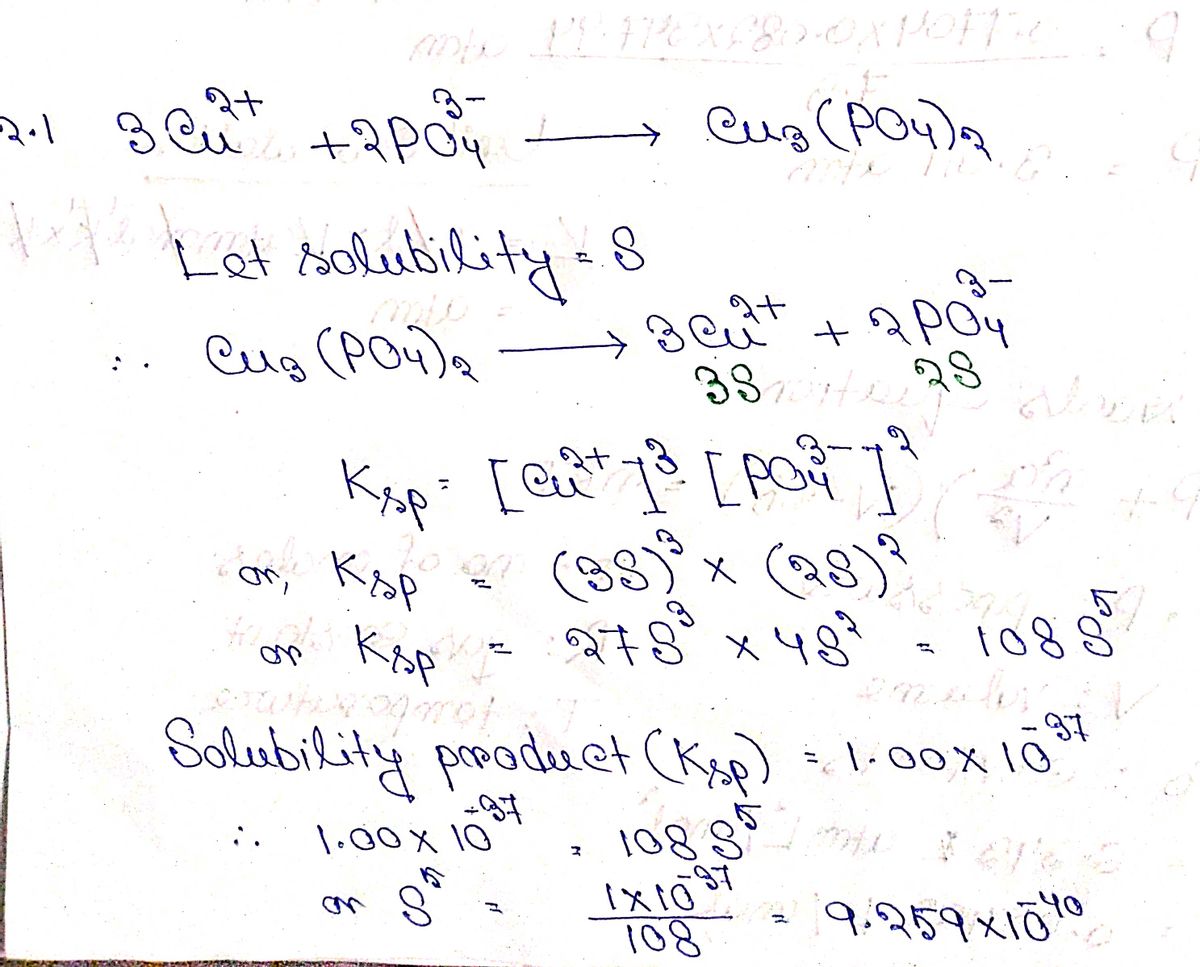 2.1 3Cu²⁺ + 2PO₄³⁻ ⟶ Cu₃(PO₄)₂
Let solubility = S
∴ Cu₃(PO₄)₂ ⟶ 3Cu²⁺ + 2PO₄³⁻
3S 2S
Ksp = [Cu²⁺]³ [PO₄³⁻]²
or, Ksp = (3S)³ × (2S)²
or Ksp = 27S³ × 4S² = 108 S⁵
Solubility product (Ksp) = 1.00 × 10⁻³⁷
∴ 1.00 × 10⁻³⁷ = 108 S⁵
or S⁵ = 1×10⁻³⁷/108 = 9.259 × 10⁻⁴⁰